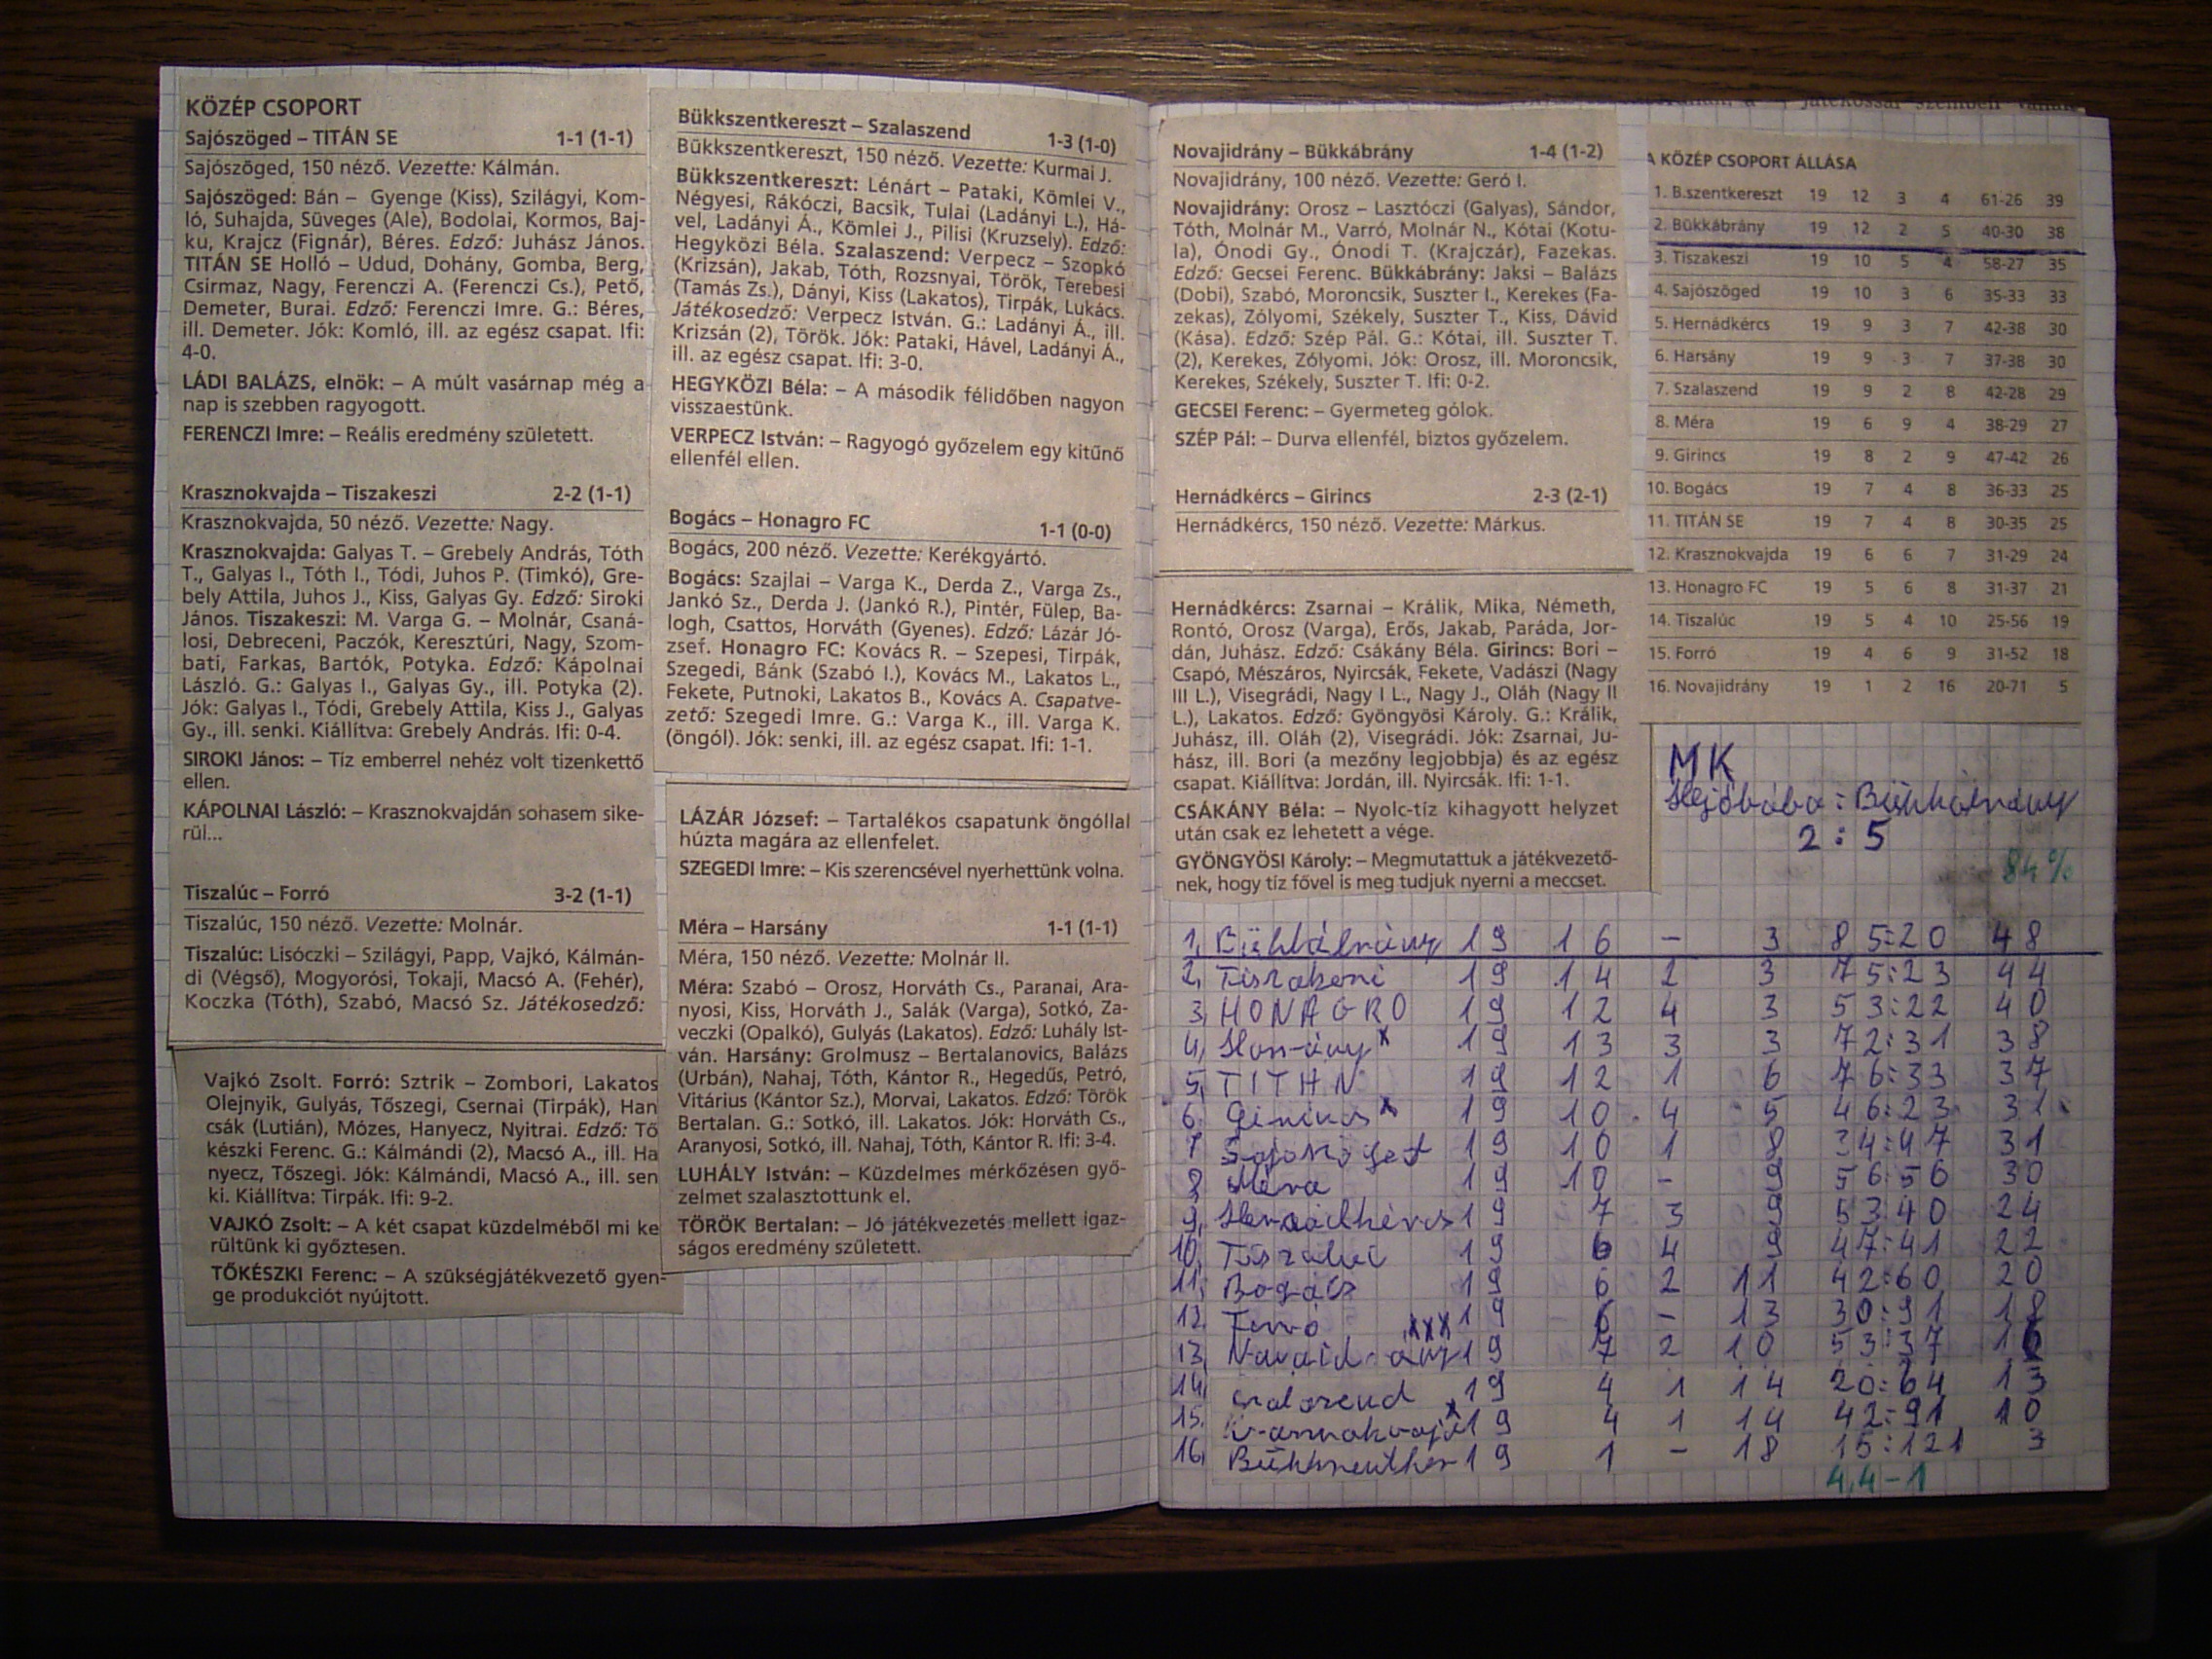 KÖZÉP CSOPORT
Sajószöged – TITÁN SE 1-1 (1-1)
Sajószöged, 150 néző. Vezette: Kálmán.
Sajószöged: Bán – Gyenge (Kiss), Szilágyi, Kom-
ló, Suhajda, Süveges (Ale), Bodolai, Kormos, Baj-
ku, Krajcz (Fignár), Béres. Edző: Juhász János.
TITÁN SE Holló – Udud, Dohány, Gomba, Berg,
Csirmaz, Nagy, Ferenczi A. (Ferenczi Cs.), Pető,
Demeter, Burai. Edző: Ferenczi Imre. G.: Béres,
ill. Demeter. Jók: Komló, ill. az egész csapat. Ifi:
4-0.
LÁDI BALÁZS, elnök: – A múlt vasárnap még a
nap is szebben ragyogott.
FERENCZI Imre: – Reális eredmény született.
Krasznokvajda – Tiszakeszi 2-2 (1-1)
Krasznokvajda, 50 néző. Vezette: Nagy.
Krasznokvajda: Galyas T. – Grebely András, Tóth
T., Galyas I., Tóth I., Tódi, Juhos P. (Timkó), Gre-
bely Attila, Juhos J., Kiss, Galyas Gy. Edző: Siroki
János. Tiszakeszi: M. Varga G. – Molnár, Csaná-
losi, Debreceni, Paczók, Keresztúri, Nagy, Szom-
bati, Farkas, Bartók, Potyka. Edző: Kápolnai
László. G.: Galyas I., Galyas Gy., ill. Potyka (2).
Jók: Galyas I., Tódi, Grebely Attila, Kiss J., Galyas
Gy., ill. senki. Kiállítva: Grebely András. Ifi: 0-4.
SIROKI János: – Tíz emberrel nehéz volt tizenkettő
ellen.
KÁPOLNAI László: – Krasznokvajdán sohasem sike-
rül...
Tiszalúc – Forró 3-2 (1-1)
Tiszalúc, 150 néző. Vezette: Molnár.
Tiszalúc: Lisóczki – Szilágyi, Papp, Vajkó, Kálmán-
di (Végső), Mogyorósi, Tokaji, Macsó A. (Fehér),
Koczka (Tóth), Szabó, Macsó Sz. Játékosedző:
Vajkó Zsolt. Forró: Sztrik – Zombori, Lakatos
Olejnyik, Gulyás, Tőszegi, Csernai (Tirpák), Han
csák (Lutián), Mózes, Hanyecz, Nyitrai. Edző: Tő
készki Ferenc. G.: Kálmándi (2), Macsó A., ill. Ha
nyecz, Tőszegi. Jók: Kálmándi, Macsó A., ill. sen
ki. Kiállítva: Tirpák. Ifi: 9-2.
VAJKÓ Zsolt: – A két csapat küzdelméből mi ke
rültünk ki győztesen.
TŐKÉSZKI Ferenc: – A szükségjátékvezető gyen-
ge produkciót nyújtott.
Bükkszentkereszt – Szalaszend 1-3 (1-0)
Bükkszentkereszt, 150 néző. Vezette: Kurmai J.
Bükkszentkereszt: Lénárt – Pataki, Kömlei V.,
Négyesi, Rákóczi, Bacsik, Tulai (Ladányi L.), Há-
vel, Ladányi Á., Kömlei J., Pilisi (Kruzsely). Edző:
Hegyközi Béla. Szalaszend: Verpecz – Szopkó
(Krizsán), Jakab, Tóth, Rozsnyai, Török, Terebesi
(Tamás Zs.), Dányi, Kiss (Lakatos), Tirpák, Lukács.
Játékosedző: Verpecz István. G.: Ladányi Á., ill.
Krizsán (2), Török. Jók: Pataki, Hável, Ladányi Á.,
ill. az egész csapat. Ifi: 3-0.
HEGYKÖZI Béla: – A második félidőben nagyon
visszaestünk.
VERPECZ István: – Ragyogó győzelem egy kitűnő
ellenfél ellen.
Bogács – Honagro FC 1-1 (0-0)
Bogács, 200 néző. Vezette: Kerékgyártó.
Bogács: Szajlai – Varga K., Derda Z., Varga Zs.,
Jankó Sz., Derda J. (Jankó R.), Pintér, Fülep, Ba-
logh, Csattos, Horváth (Gyenes). Edző: Lázár Jó-
zsef. Honagro FC: Kovács R. – Szepesi, Tirpák,
Szegedi, Bánk (Szabó I.), Kovács M., Lakatos L.,
Fekete, Putnoki, Lakatos B., Kovács A. Csapatve-
zető: Szegedi Imre. G.: Varga K., ill. Varga K.
(öngól). Jók: senki, ill. az egész csapat. Ifi: 1-1.
LÁZÁR József: – Tartalékos csapatunk öngóllal
húzta magára az ellenfelet.
SZEGEDI Imre: – Kis szerencsével nyerhettünk volna.
Méra – Harsány 1-1 (1-1)
Méra, 150 néző. Vezette: Molnár II.
Méra: Szabó – Orosz, Horváth Cs., Paranai, Ara-
nyosi, Kiss, Horváth J., Salák (Varga), Sotkó, Za-
veczki (Opalkó), Gulyás (Lakatos). Edző: Luhály Ist-
ván. Harsány: Grolmusz – Bertalanovics, Balázs
(Urbán), Nahaj, Tóth, Kántor R., Hegedűs, Petró,
Vitárius (Kántor Sz.), Morvai, Lakatos. Edző: Török
Bertalan. G.: Sotkó, ill. Lakatos. Jók: Horváth Cs.,
Aranyosi, Sotkó, ill. Nahaj, Tóth, Kántor R. Ifi: 3-4.
LUHÁLY István: – Küzdelmes mérkőzésen győ-
zelmet szalasztottunk el.
TÖRÖK Bertalan: – Jó játékvezetés mellett igaz-
ságos eredmény született.
Novajidrány – Bükkábrány 1-4 (1-2)
Novajidrány, 100 néző. Vezette: Geró I.
Novajidrány: Orosz – Lasztóczi (Galyas), Sándor,
Tóth, Molnár M., Varró, Molnár N., Kótai (Kotu-
la), Ónodi Gy., Ónodi T. (Krajczár), Fazekas.
Edző: Gecsei Ferenc. Bükkábrány: Jaksi – Balázs
(Dobi), Szabó, Moroncsik, Suszter I., Kerekes (Fa-
zekas), Zólyomi, Székely, Suszter T., Kiss, Dávid
(Kása). Edző: Szép Pál. G.: Kótai, ill. Suszter T.
(2), Kerekes, Zólyomi. Jók: Orosz, ill. Moroncsik,
Kerekes, Székely, Suszter T. Ifi: 0-2.
GECSEI Ferenc: – Gyermeteg gólok.
SZÉP Pál: – Durva ellenfél, biztos győzelem.
Hernádkércs – Girincs 2-3 (2-1)
Hernádkércs, 150 néző. Vezette: Márkus.
Hernádkércs: Zsarnai – Králik, Mika, Németh,
Rontó, Orosz (Varga), Erős, Jakab, Paráda, Jor-
dán, Juhász. Edző: Csákány Béla. Girincs: Bori –
Csapó, Mészáros, Nyircsák, Fekete, Vadászi (Nagy
III L.), Visegrádi, Nagy I L., Nagy J., Oláh (Nagy II
L.), Lakatos. Edző: Gyöngyösi Károly. G.: Králik,
Juhász, ill. Oláh (2), Visegrádi. Jók: Zsarnai, Ju-
hász, ill. Bori (a mezőny legjobbja) és az egész
csapat. Kiállítva: Jordán, ill. Nyircsák. Ifi: 1-1.
CSÁKÁNY Béla: – Nyolc-tíz kihagyott helyzet
után csak ez lehetett a vége.
GYÖNGYÖSI Károly: – Megmutattuk a játékvezető-
nek, hogy tíz fővel is meg tudjuk nyerni a meccset.
játékossal szemben
A KÖZÉP CSOPORT ÁLLÁSA
1. B.szentkereszt 19 12 3 4 61-26 39
2. Bükkábrány 19 12 2 5 40-30 38
3. Tiszakeszi 19 10 5 4 58-27 35
4. Sajószöged 19 10 3 6 35-33 33
5. Hernádkércs 19 9 3 7 42-38 30
6. Harsány 19 9 3 7 37-38 30
7. Szalaszend 19 9 2 8 42-28 29
8. Méra 19 6 9 4 38-29 27
9. Girincs 19 8 2 9 47-42 26
10. Bogács 19 7 4 8 36-33 25
11. TITÁN SE 19 7 4 8 30-35 25
12. Krasznokvajda 19 6 6 7 31-29 24
13. Honagro FC 19 5 6 8 31-37 21
14. Tiszalúc 19 5 4 10 25-56 19
15. Forró 19 4 6 9 31-52 18
16. Novajidrány 19 1 2 16 20-71 5
MK
Hejőbába : Bükkábrány
2 : 5
84%
1, Bükkábrány 19 16 – 3 85:20 48
2, Tiszakeszi 19 14 2 3 75:23 44
3, HONAGRO 19 12 4 3 53:22 40
4, Harsány x 19 13 3 3 72:31 38
5, TITÁN 19 12 1 6 76:33 37
6. Girincs x 19 10 4 5 46:23 31
7 Sajószöged 19 10 1 8 34:47 31
8, Méra 19 10 – 9 56:56 30
9, Hernádkércs 19 7 3 9 53:40 24
10, Tiszalúc 19 6 4 9 47:41 22
11, Bogács 19 6 2 11 42:60 20
12. Forró 19 6 – 13 30:91 18
13, Novajidrány xxx 19 7 2 10 53:37
14, Szalaszend 19 4 1 14 20:64 13
15. Krasznokvajd x 19 4 1 14 42:91 10
16, Bükkszentker 19 1 – 18 15:121 3
4,4-1